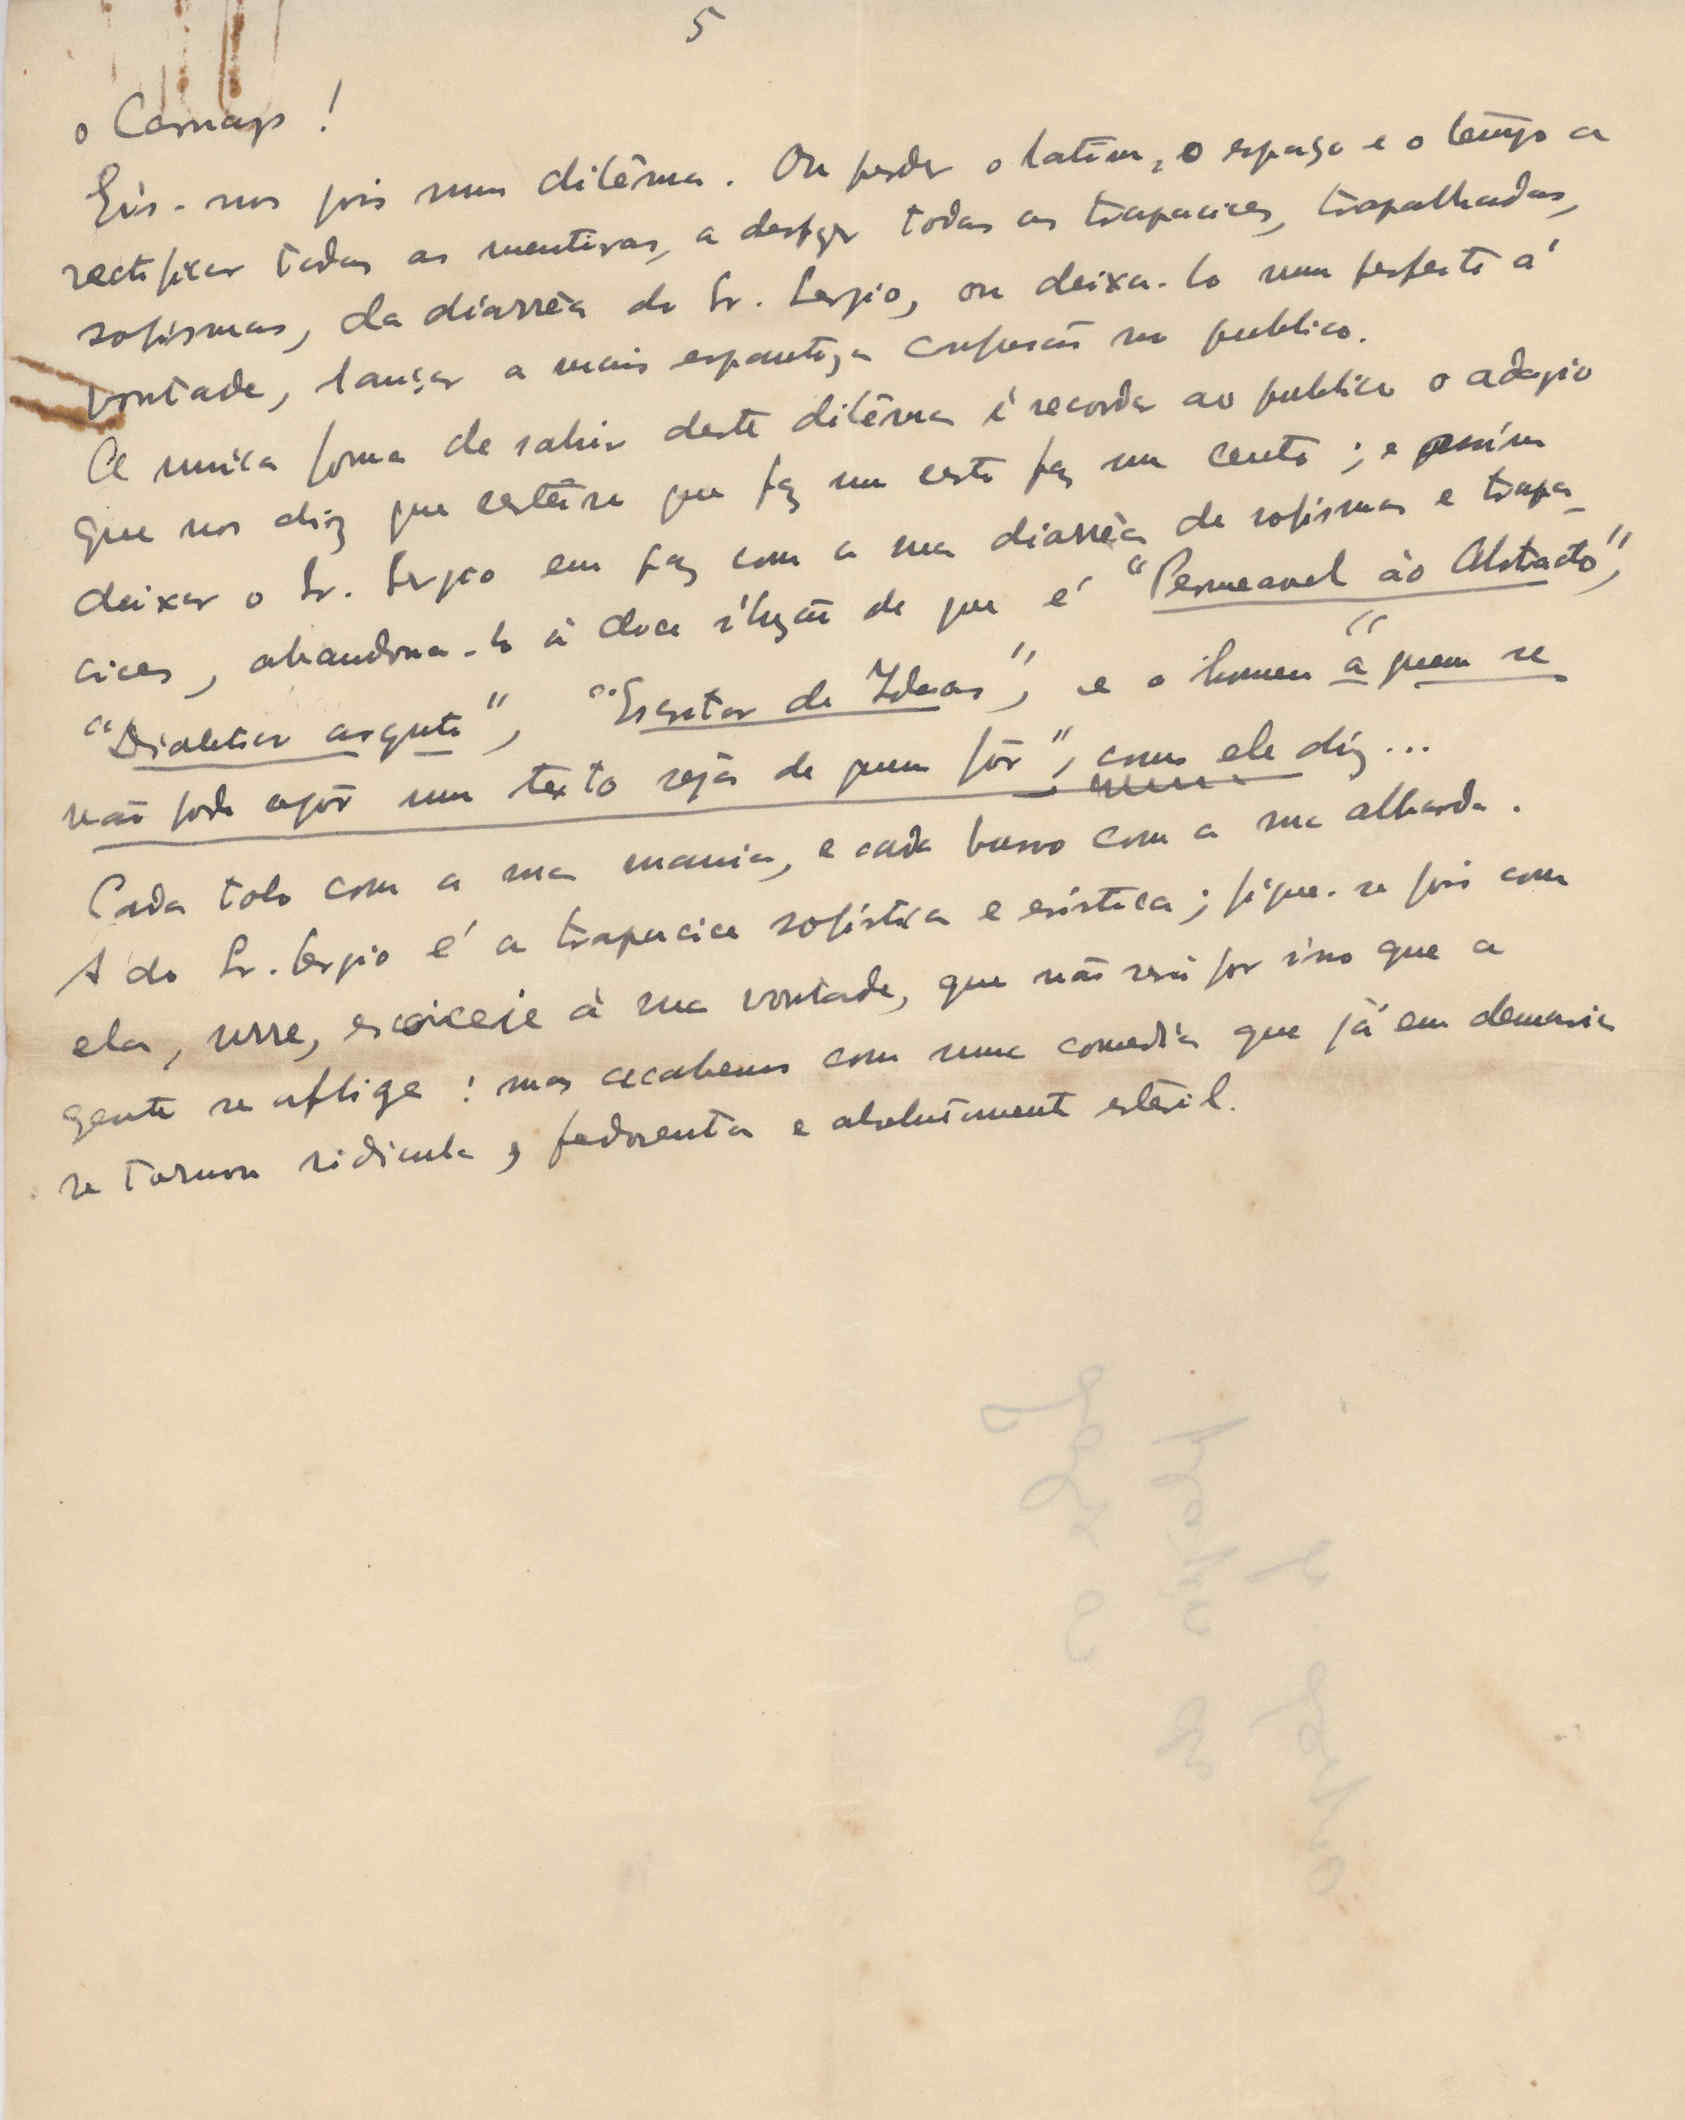 5
o Carnap !
Eis-nos pois num dilêma. Ou perder o latim, o espaço e o tempo a
rectificar todas as mentiras, a desfazer todas as trapacices, trapalhadas,
sofismas, da diarrêa do Sr. Sergio, ou deixa-lo num perfeito á
vontade, lançar a mais espantoza confusão no publico.
A unica forma de sahir deste dilêma é recordar ao publico o adagio
que nos diz que cestêiro que faz um cesto faz um cento ; e assim
deixar o Sr. Sergio em paz com a sua diarrêa de sofismas e trapa-
cices, abandona-lo á doce iluzão de que é "Permeavel ào Abstracto",
"Dialetico arguto", "Escritor de Ideas", e o homem "a quem se
não pode opôr um texto seja de quem fôr", como ele diz...
Cada tolo com a sua mania, e cada burro com a sua albarda.
A do Sr. Sergio é a trapacice sofistica e erística; fique-se pois com
ela, urre, escoiceie á sua vontade, que não será por isso que a
gente se aflige : mas acabemos com uma comedia que já em demasia
se tornou ridicula, fedorenta e absolutamente estéril.